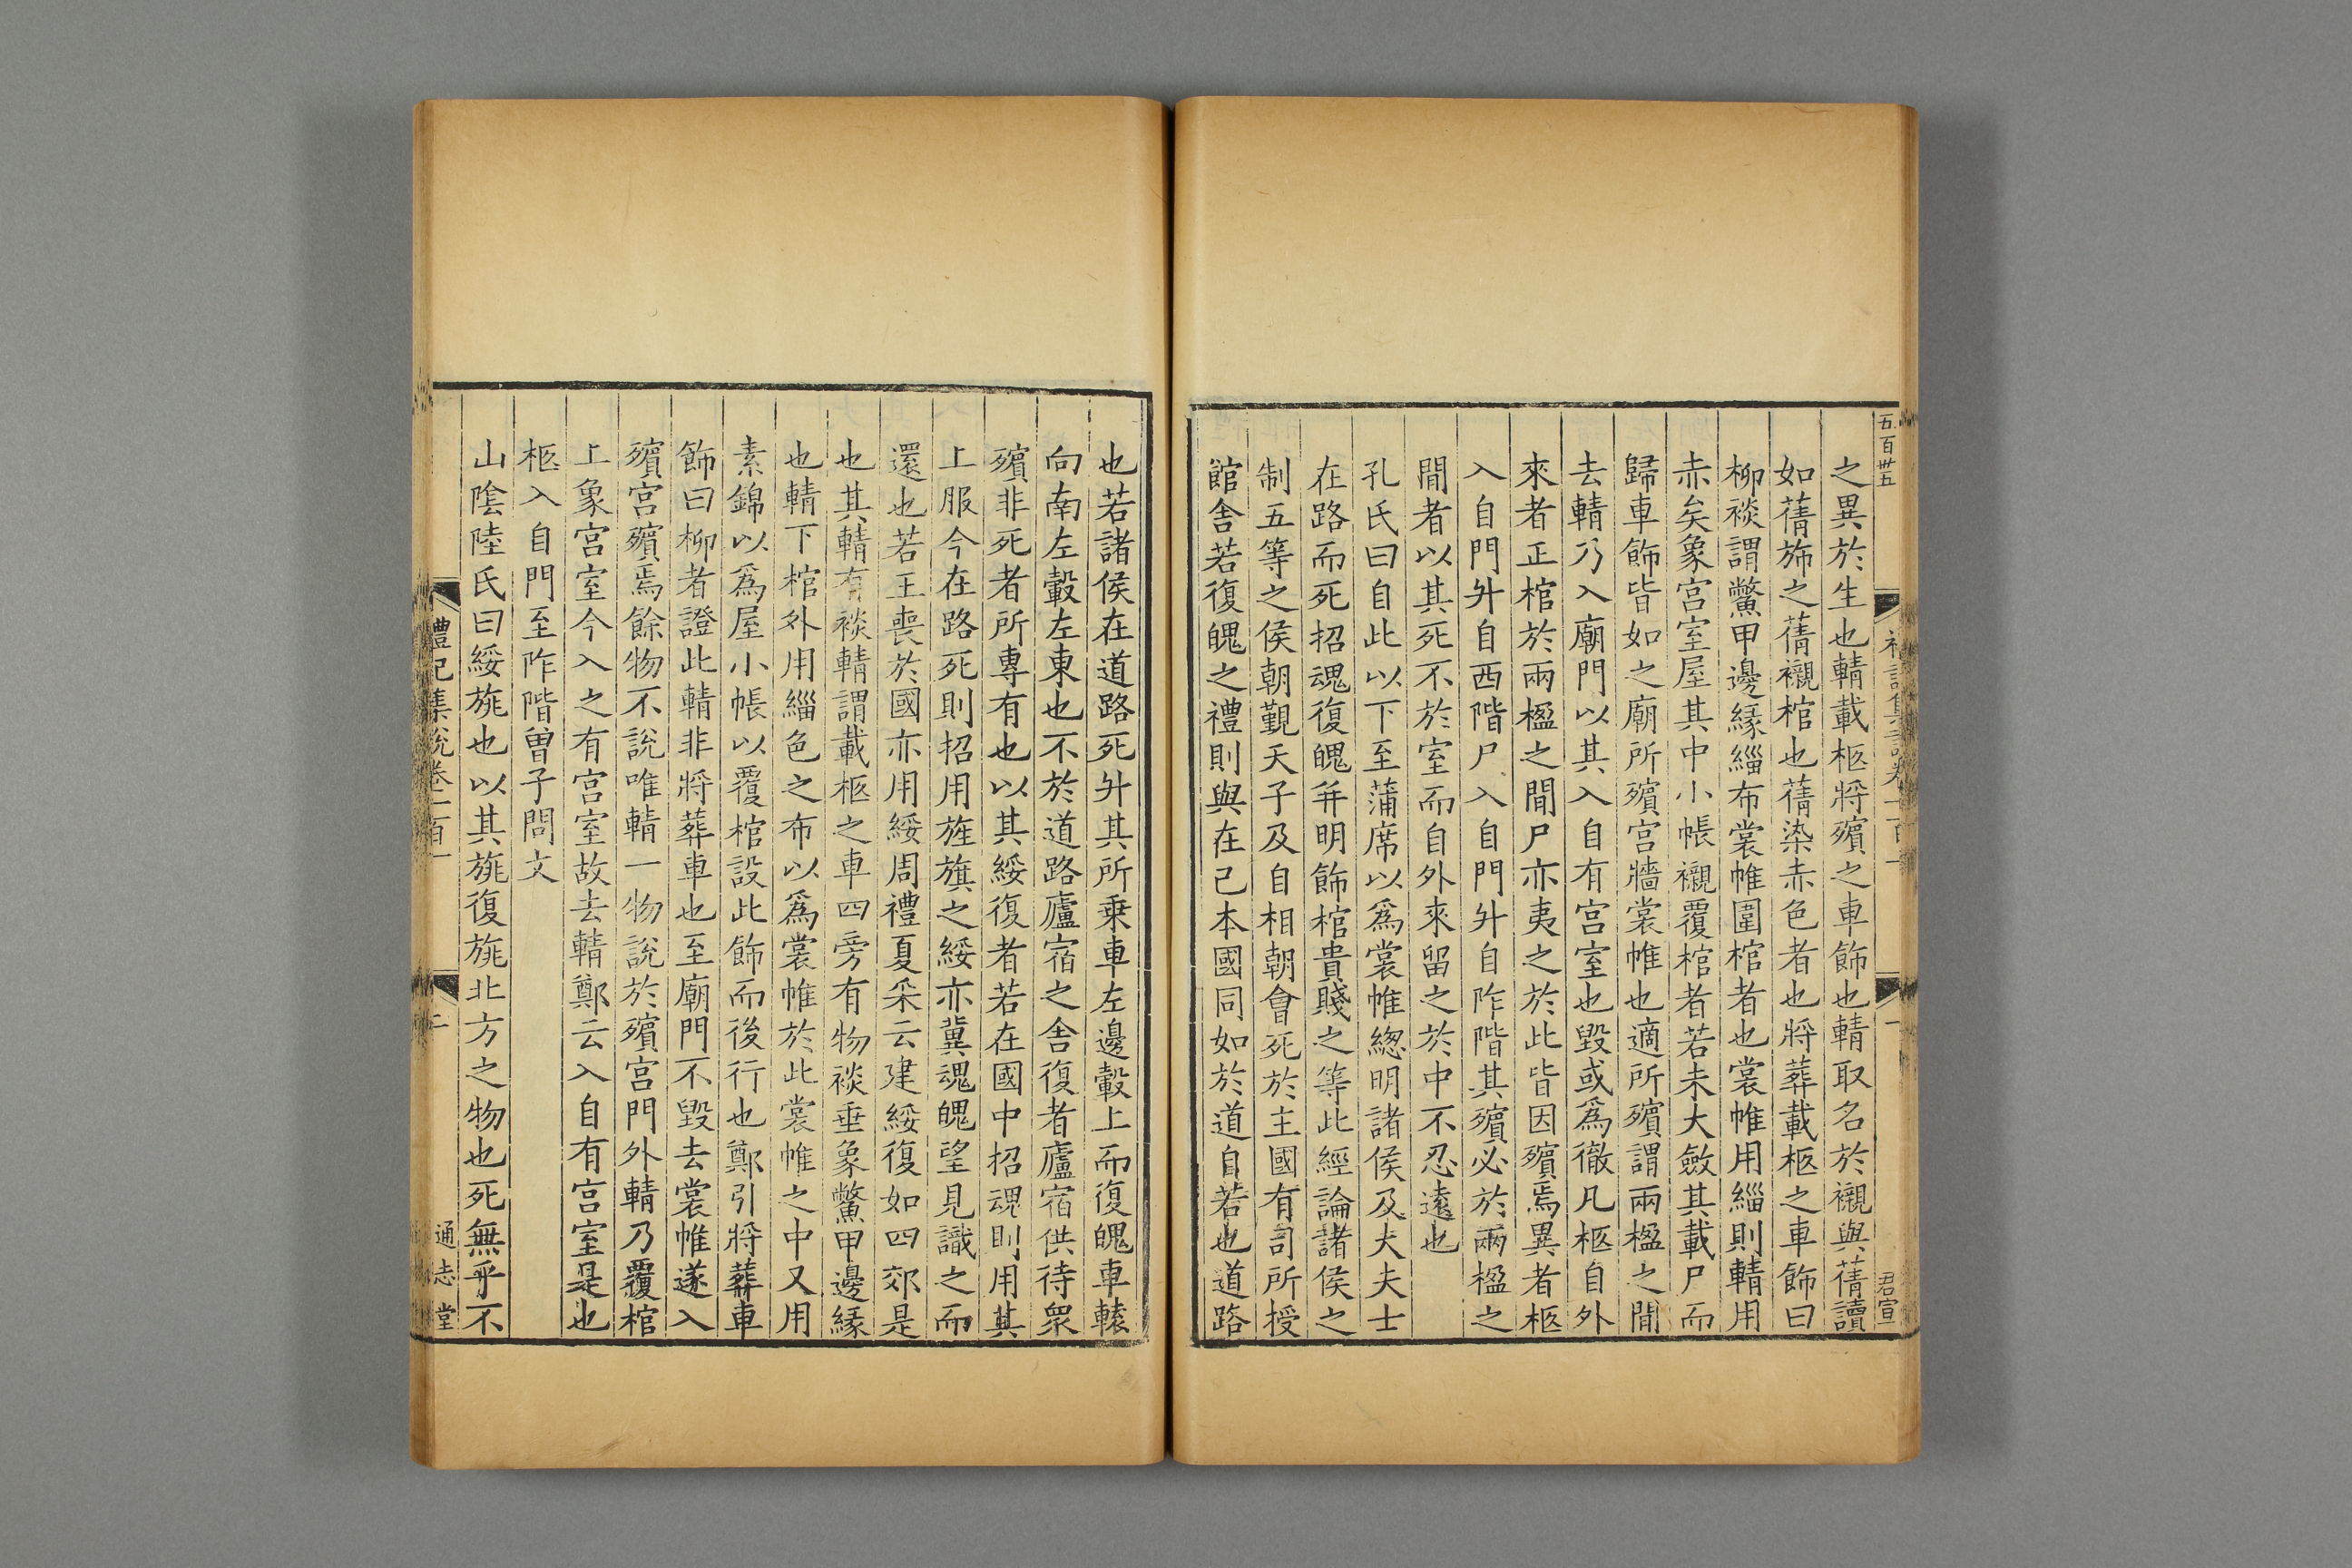 五百卅五
之異於生也輤載柩將殯之車飾也輤取名於襯與蒨讀
如蒨斾之蒨襯棺也蒨染赤色者也將葬載柩之車飾曰
柳裧謂鱉甲邊緣緇布裳帷圍棺者也裳帷用緇則輤用
赤矣象宮室屋其中小帳襯覆棺者若未大斂其載尸而
歸車飾皆如之廟所殯宮牆裳帷也適所殯謂兩楹之間
去輤乃入廟門以其入自有宮室也毀或爲徹凡柩自外
來者正棺於兩楹之間尸亦夷之於此皆因殯焉異者柩
入自門升自西階尸入自門升自阼階其殯必於兩楹之
間者以其死不於室而自外來留之於中不忍遠也
孔氏曰自此以下至蒲席以爲裳帷緫明諸侯及大夫士
在路而死招魂復魄并明飾棺貴賤之等此經論諸侯之
制五等之侯朝覲天子及自相朝會死於主國有司所授
館舍若復魄之禮則與在己本國同如於道自若也道路
禮記集說卷一百一
一
君宣
也若諸侯在道路死升其所乗車左邊轂上而復魄車轅
向南左轂左東也不於道路廬宿之舍復者廬宿供待衆
殯非死者所專有也以其綏復者若在國中招魂則用其
上服今在路死則招用旌旗之綏亦冀魂魄望見識之而
還也若王喪於國亦用綏周禮夏采云建綏復如四郊是
也其輤有裧輤謂載柩之車四旁有物裧垂象鱉甲邊緣
也輤下棺外用緇色之布以爲裳帷於此裳帷之中又用
素錦以爲屋小帳以覆棺設此飾而後行也鄭引將葬車
飾曰柳者證此輤非將葬車也至廟門不毀去裳帷遂入
殯宮殯焉餘物不說唯輤一物說於殯宮門外輤乃覆棺
上象宮室今入之有宮室故去輤鄭云入自有宮室是也
柩入自門至阼階曾子問文
山陰陸氏曰綏旐也以其旐復旐北方之物也死無乎不
禮記集說卷一百一
二
通志堂